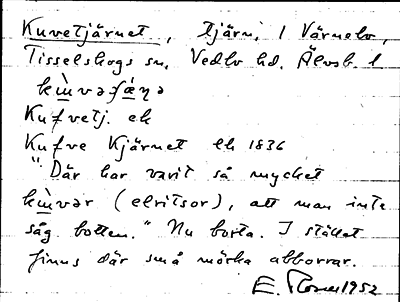 Kuvetjärnet, tjärn, i Värnebo,
Tisselskogs sn, Vedbo hd. Älvsb. l
kùvaʃæ̀ṇa
Kufvetj. ek
Kufve Kjärnet lh 1836
"Där har varit så mycket
kùvar (elritsor), att man inte
såg botten." Nu borta. I stället
finns där små mörka abborrar.
E. 1952